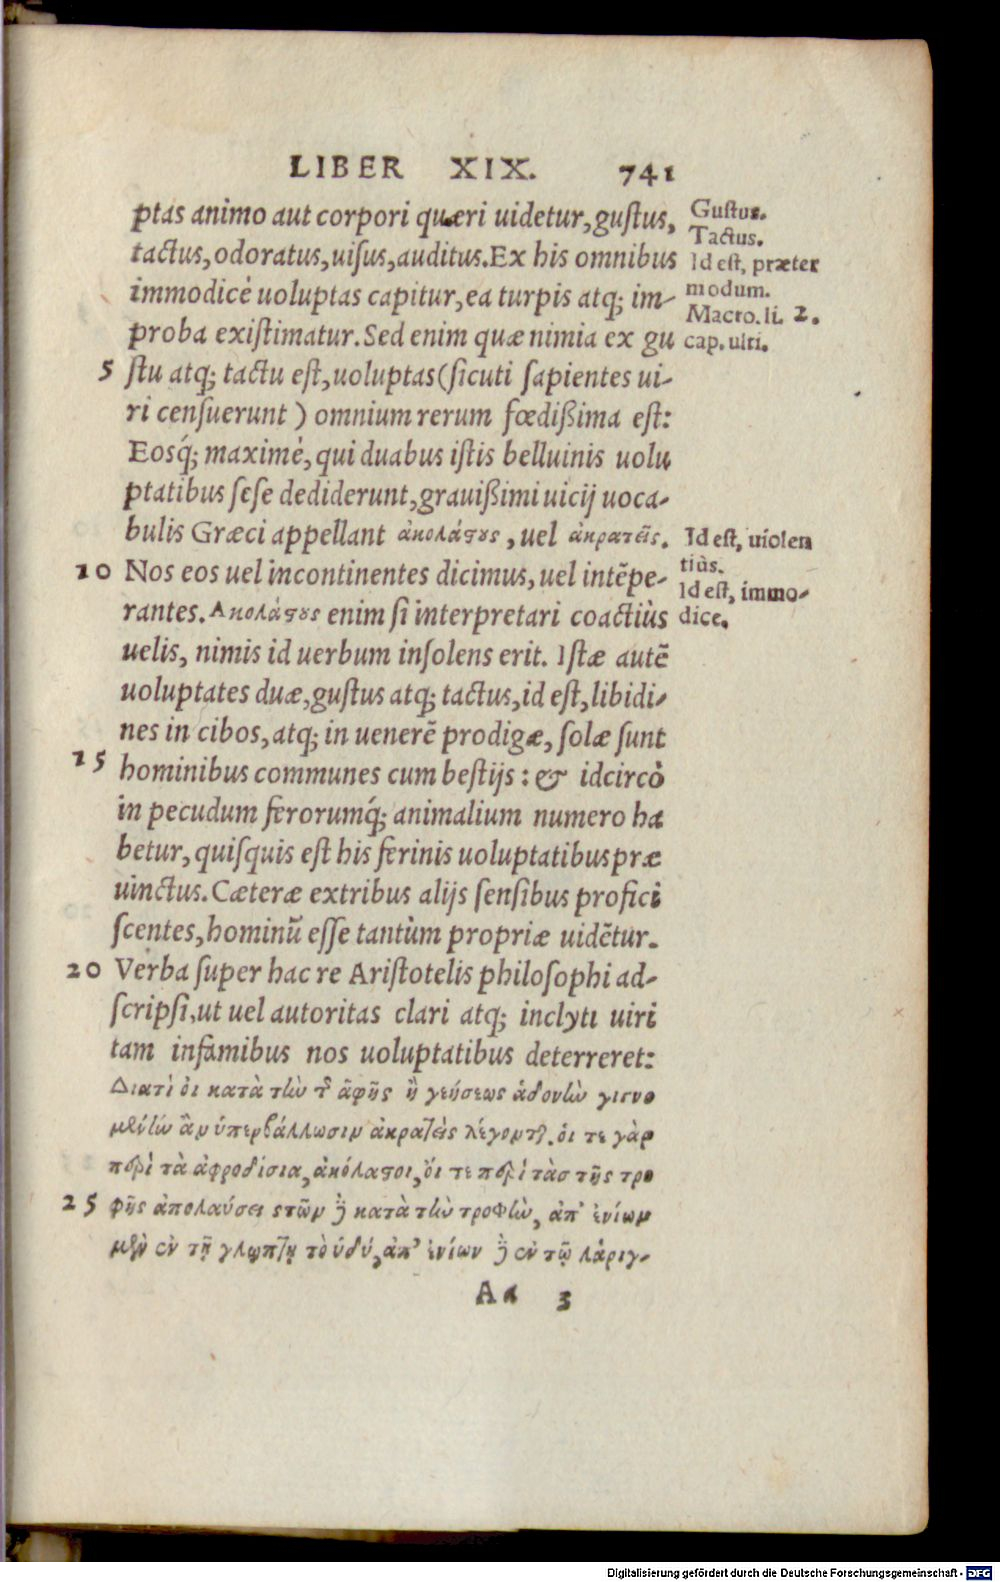 LIBER XIX. 741
ptas animo aut corpori quæri uidetur, gustus,
tactus, odoratus, uisus, auditus. Ex his omnibus
immodicè uoluptas capitur, ea turpis atq; im-
proba existimatur. Sed enim quæ nimia ex gu
5 stu atq; tactu est, uoluptas (sicuti sapientes ui-
ri censuerunt) omnium rerum fœdißima est:
Eosq́; maximè, qui duabus istis belluinis uolu
ptatibus sese dediderunt, grauißimi uicij uoca-
bulis Græci appellant ἀκολάϛους, uel ἀκρατεῖς.
10 Nos eos uel incontinentes dicimus, uel intẽpe-
rantes. Ακολάϛους enim si interpretari coactiùs
uelis, nimis id uerbum insolens erit. Istæ autẽ
uoluptates duæ, gustus atq; tactus, id est, libidi-
nes in cibos, atq; in uenerẽ prodigæ, solæ sunt
15 hominibus communes cum bestijs: & idcircò
in pecudum ferorumq́; animalium numero ha
betur, quisquis est his ferinis uoluptatibus præ
uinctus. Cæteræ ex tribus alijs sensibus profici
scentes, hominũ esse tantùm propriæ uidẽtur.
20 Verba super hac re Aristotelis philosophi ad-
scripsi, ut uel autoritas clari atq; inclyti uiri
tam infamibus nos uoluptatibus deterreret:
Διατὶ οἱ κατὰ τὴν τ͂ ἁφῆς ἢ γεύσεως ἡδονὴν γιγνο
μένην ἂν ὑπερβάλλωσιν ἀκρατεῖς λέγονται. οἱ τε γὰρ
περὶ τὰ ἀφροδίσια, ἀκόλαϛοι, ὅι τε περὶ τὰσ τῆς τρο
25 φῆς ἀπολαύσει ςτῶν ϗ̀ κατὰ τὴν τροφὴν, ἀπ' ἐνίων
μὲν ἐν τῇ γλώττῃ τὸ ἡδύ, ἀπ' ἐνίων ϗ̀ ἐν τῷ λάριγ-
Aa 3
Gustus.
Tactus.
Id est, præter
modum.
Macro. li. 2.
cap. ulti.
Id est, uiolen
tiùs.
Id est, immo-
dice.
Digitalisierung gefördert durch die Deutsche Forschungsgemeinschaft - DFG